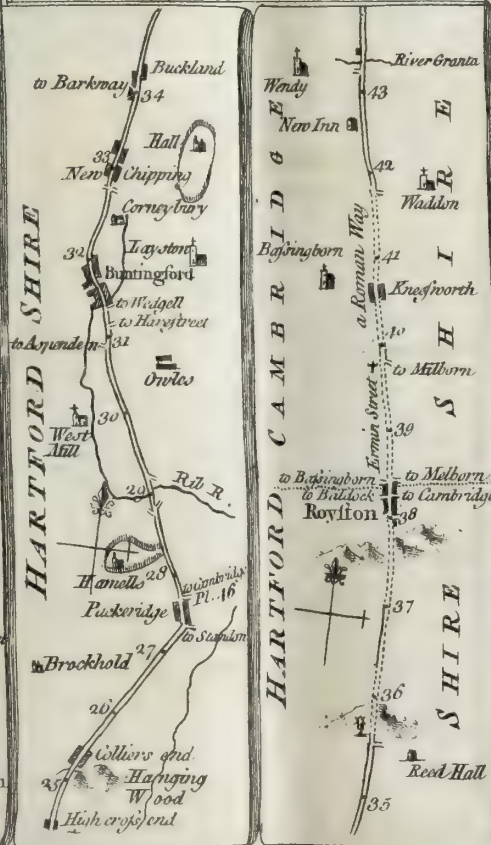 Buckland
to Barkway
34
Hall
33
New Chipping
Corneybury
32
Layston
Buntingford
to Wedgell
to Harestreet
to Aspenden
31
Owles
30
West
Mill
29
Rib R.
Hamells
28
to Cambridge
Pl. 46
Puckeridge
to Standon
27
Brockhold
26
Colliers end
25
Hanging
Wood
High cross end
HARTFORD SHIRE
River Granta
Wendy
43
New Inn
42
Waddon
a Roman Way
41
Bassingborn
Kneesworth
40
to Milborn
Ermin Street
39
to Bassingborn
to Melborn
to Baldock
to Cambridge
Royston
38
37
36
Reed Hall
35
HARTFORD
CAMBRIDGE
SHIRE
SHIRE